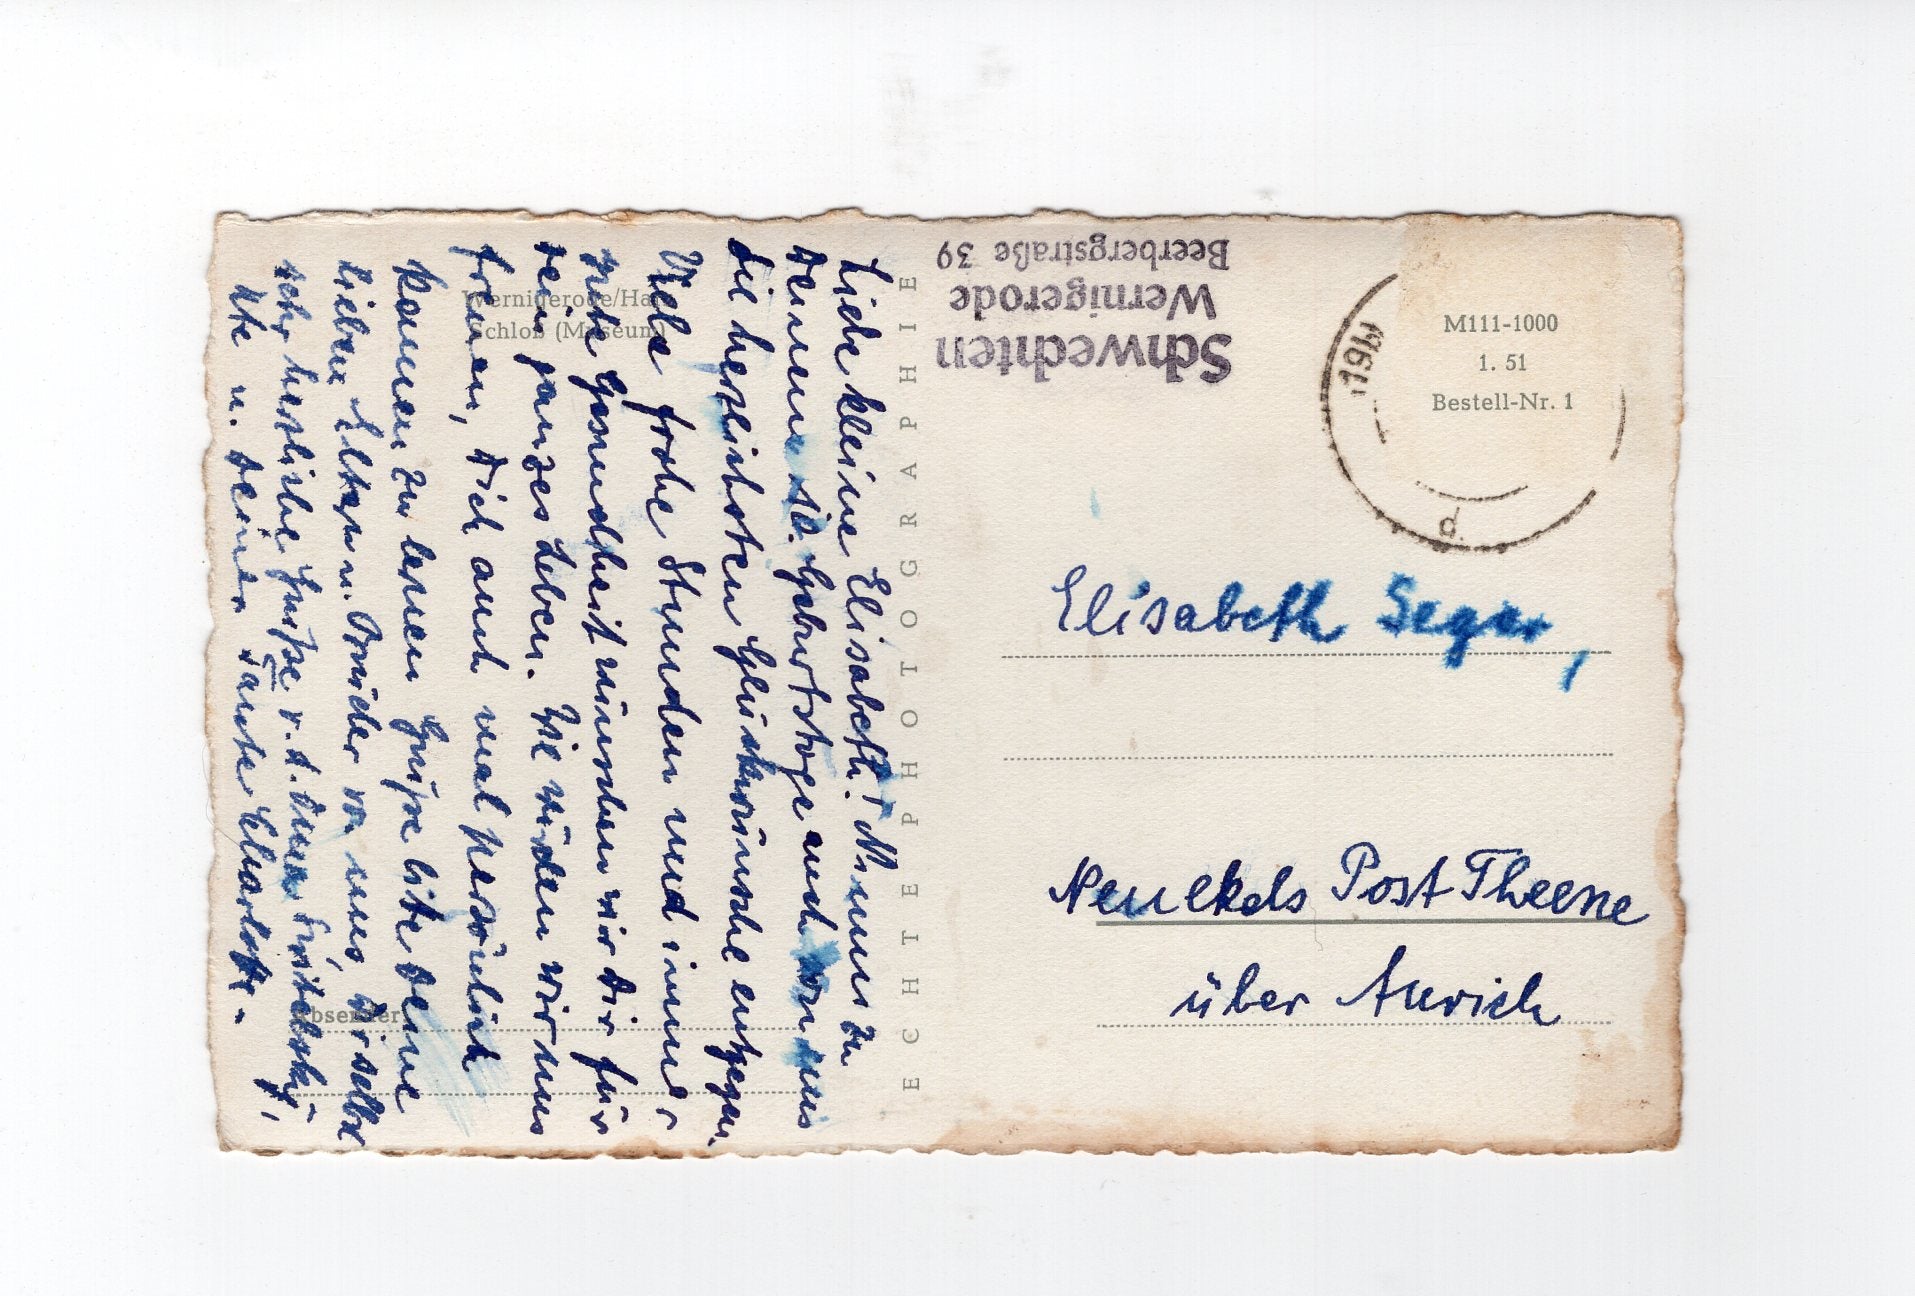 Liebe kleine Elisabeth! Nimm zu
Deinem 10. Geburtstage auch von uns
die herzlichsten Glückwünsche entgegen.
Viele frohe Stunden und immer
viele Gesundheit wünschen wir Dir für
Dein ganzes Leben. Wir würden wir uns
freuen, Dich auch mal persönlich
kennen zu lernen. Grüße bitte Deine
lieben Eltern u. Brüder von uns, Dir selbst
sehr herzliche Grüße v. d.
Ute u. Deiner Tante Charlotte.
Wernigerode/Harz
Schloß (Museum)
Absender:
ECHTE PHOTOGRAPHIE
Schwechten
Wernigerode
Beerbergstraße 39
M111-1000
1. 51
Bestell-Nr. 1
-19
d
Elisabeth Seger,
Neu Ekels Post Theene
über Aurich